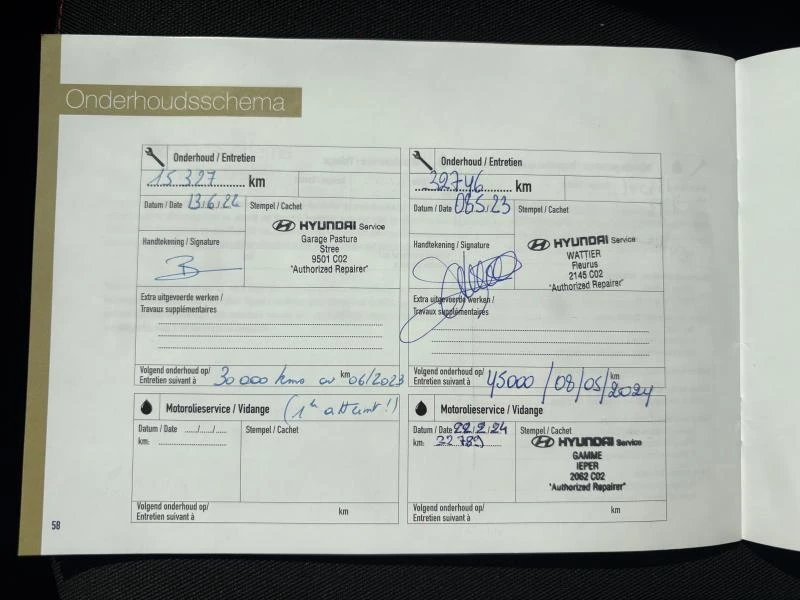 Onderhoudsschema
Onderhoud / Entretien
15 327 km
Datum / Date 13/6/22
Stempel / Cachet
HYUNDAI Service
Garage Pasture
Stree
9501 C02
"Authorized Repairer"
Handtekening / Signature
Extra uitgevoerde werken /
Travaux supplémentaires
Volgend onderhoud op/
Entretien suivant à 30 000 kms ou km 06/2023
Motorolieservice / Vidange (1er atteint !)
Datum / Date ..../..../....
km:
Stempel / Cachet
Volgend onderhoud op/
Entretien suivant à km
Onderhoud / Entretien
32746 km
Datum / Date 08.5.23
Stempel / Cachet
HYUNDAI Service
WATTIER
Fleurus
2145 C02
"Authorized Repairer"
Handtekening / Signature
Extra uitgevoerde werken /
Travaux supplémentaires
Volgend onderhoud op/
Entretien suivant à 45000 / 08/05/2024 km
Motorolieservice / Vidange
Datum / Date 22/2/24
km: 32789
Stempel / Cachet
HYUNDAI Service
GAMME
IEPER
2062 C02
"Authorized Repairer"
Volgend onderhoud op/
Entretien suivant à km
58